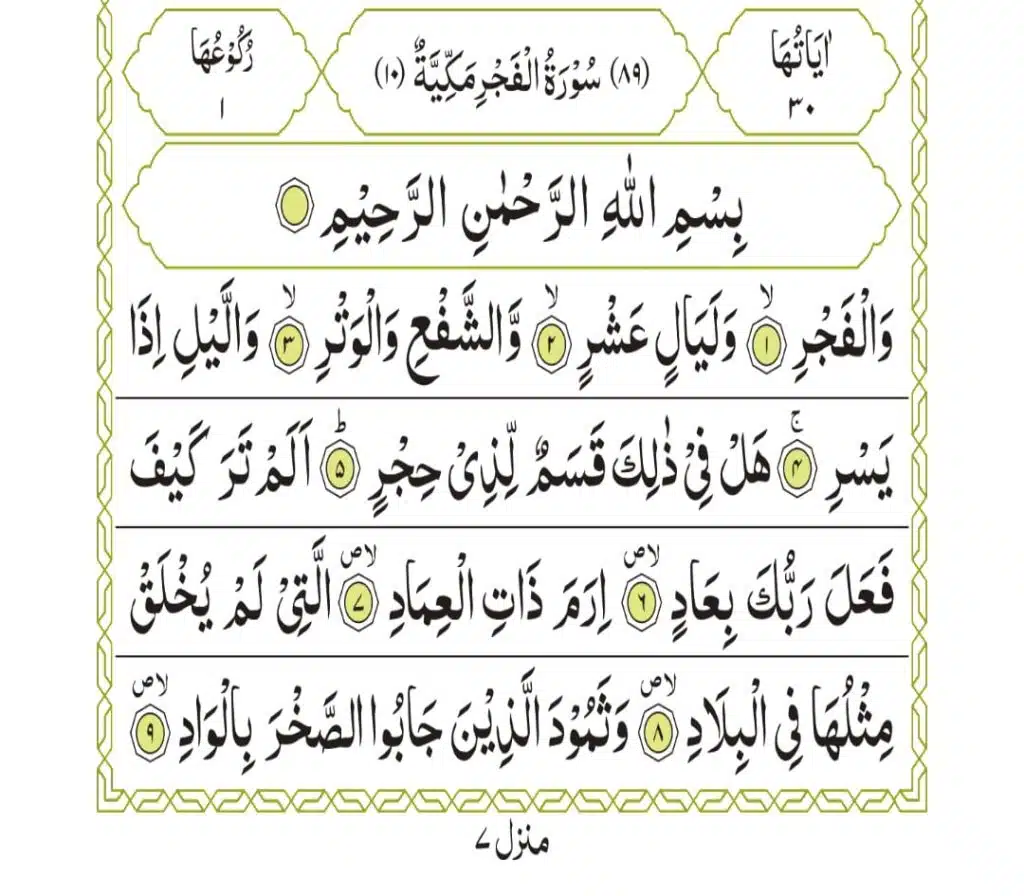 اٰيَاتُهَا ٣٠ (٨٩) سُوْرَةُ الْفَجْرِ مَكِّيَّةٌ (١٠) رُكُوْعُهَا ١
بِسْمِ اللّٰهِ الرَّحْمٰنِ الرَّحِيْمِ
وَالْفَجْرِ ۙ‏ ١ وَلَيَالٍ عَشْرٍ ۙ‏ ٢ وَّالشَّفْعِ وَالْوَتْرِ ۙ‏ ٣ وَالَّيْلِ اِذَا
يَسْرِ ۚ‏ ۴ هَلْ فِىْ ذٰلِكَ قَسَمٌ لِّذِىْ حِجْرٍ ؕ‏ ۵ اَلَمْ تَرَ كَيْفَ
فَعَلَ رَبُّكَ بِعَادٍ ۙ ۪ ۶ اِرَمَ ذَاتِ الْعِمَادِ ۙ ۪ ۷ الَّتِىْ لَمْ يُخْلَقْ
مِثْلُهَا فِى الْبِلَادِ ۙ ۪ ۸ وَثَمُوْدَ الَّذِيْنَ جَابُوا الصَّخْرَ بِالْوَادِ ۙ ۪ ۹
منزل ۷